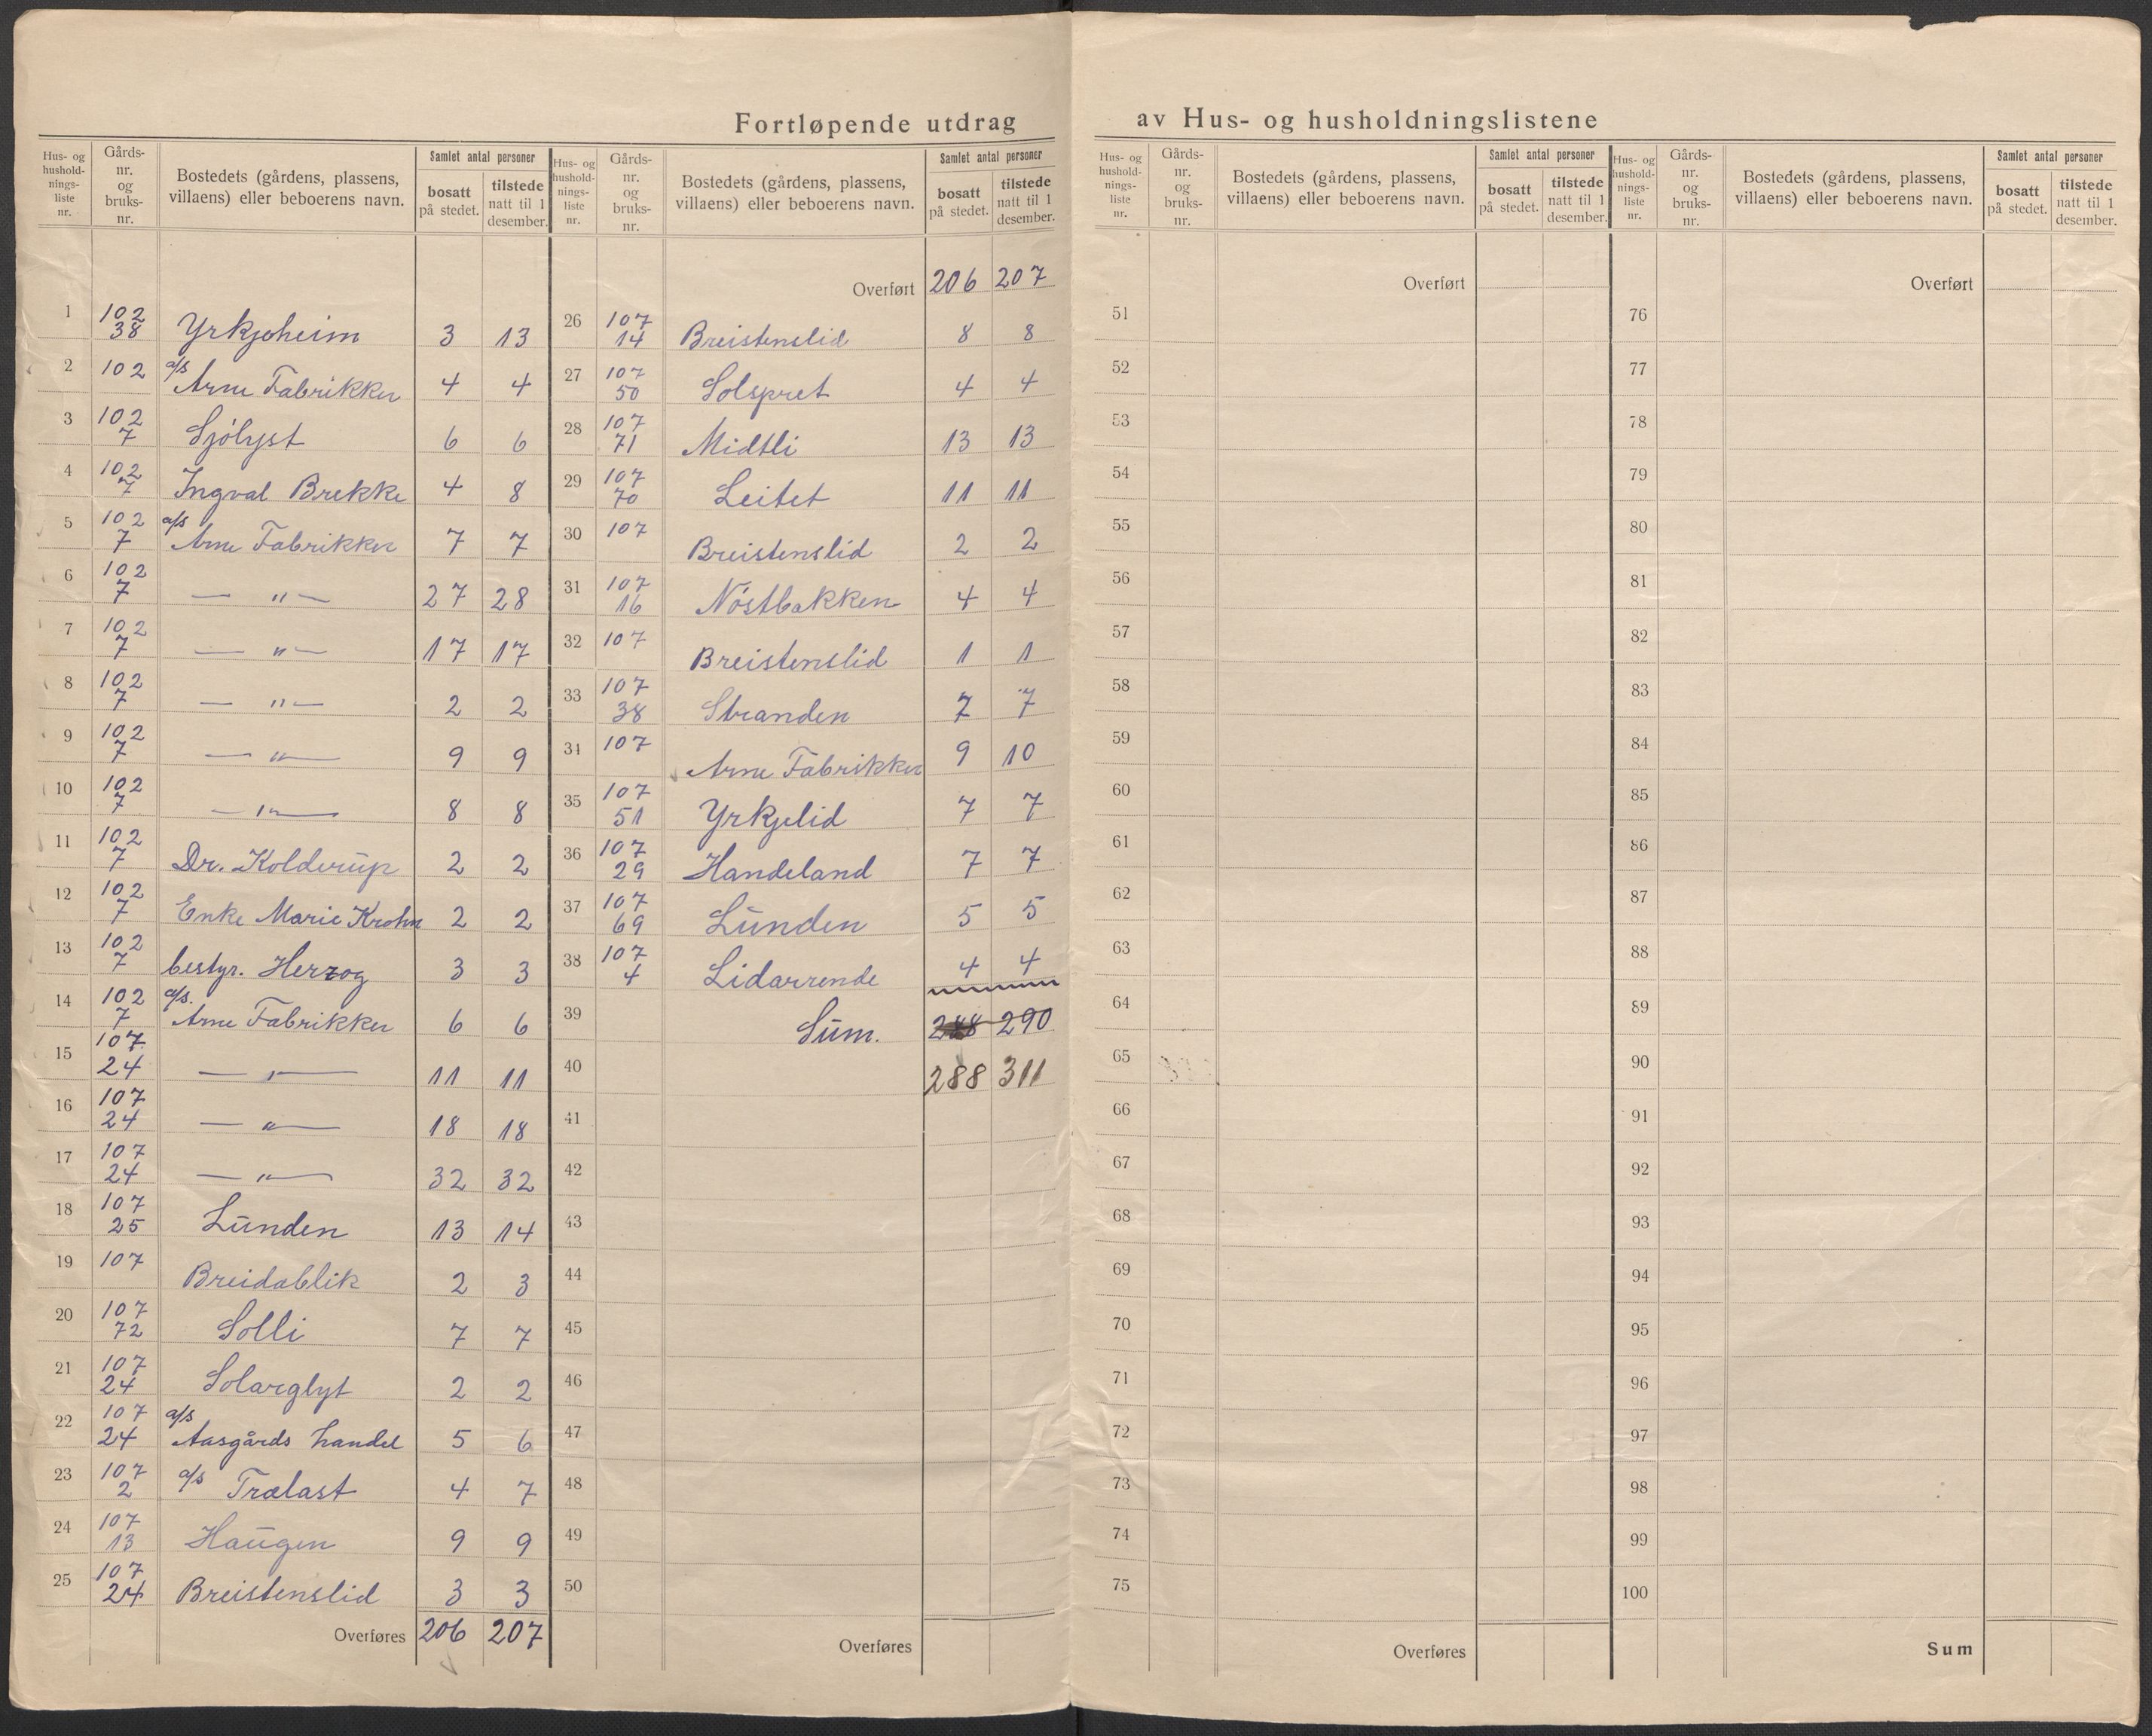 Fortløpende utdrag av Hus- og husholdningslistene
Hus- og hushold-nings-liste nr. | Gårds-nr. og bruks-nr. | Bostedets (gårdens, plassens, villaens) eller beboerens navn. | Samlet antal personer | bosatt på stedet. | tilstede natt til 1 desember.
1 | 102 38 | Yrkjeheim | 3 | 13
2 | 102 | a/s Arne Fabrikker | 4 | 4
3 | 102 7 | Sjölyst | 6 | 6
4 | 102 7 | Ingval Brekke | 4 | 8
5 | 102 7 | a/s Arne Fabrikker | 7 | 7
6 | 102 7 | — " — | 27 | 28
7 | 102 7 | — " — | 17 | 17
8 | 102 7 | — " — | 2 | 2
9 | 102 7 | — " — | 9 | 9
10 | 102 7 | — " — | 8 | 8
11 | 102 7 | Dr. Kolderup | 2 | 2
12 | 102 7 | Enke Marie Krohn | 2 | 2
13 | 102 7 | bestyr. Herzog | 3 | 3
14 | 102 7 | a/s. Arne Fabrikker | 6 | 6
15 | 107 24 | — " — | 11 | 11
16 | 107 24 | — " — | 18 | 18
17 | 107 24 | — " — | 32 | 32
18 | 107 25 | Lunden | 13 | 14
19 | 107 | Breidablik | 2 | 3
20 | 107 72 | Solli | 7 | 7
21 | 107 24 | Solarglyt | 2 | 2
22 | 107 24 | a/s Aasgårds handel | 5 | 6
23 | 107 2 | a/s Trælast | 4 | 7
24 | 107 13 | Haugen | 9 | 9
25 | 107 24 | Breistenslid | 3 | 3
Overføres | 206 | 207
Hus- og hushold-nings-liste nr. | Gårds-nr. og bruks-nr. | Bostedets (gårdens, plassens, villaens) eller beboerens navn. | Samlet antal personer | bosatt på stedet. | tilstede natt til 1 desember.
Overført | 206 | 207
26 | 107 14 | Breistenslid | 8 | 8
27 | 107 50 | Solspret | 4 | 4
28 | 107 71 | Midtli | 13 | 13
29 | 107 70 | Leitet | 11 | 11
30 | 107 | Breistenslid | 2 | 2
31 | 107 16 | Nöstbakken | 4 | 4
32 | 107 | Breistenslid | 1 | 1
33 | 107 38 | Stranden | 7 | 7
34 | 107 | Arne Fabrikker | 9 | 10
35 | 107 51 | Yrkjelid | 7 | 7
36 | 107 29 | Handeland | 7 | 7
37 | 107 69 | Lunden | 5 | 5
38 | 107 4 | Lidarrende | 4 | 4
39 | Sum. | 288 | 290
40 | 288 | 311
41
42
43
44
45
46
47
48
49
50
Overføres
Hus- og hushold-nings-liste nr. | Gårds-nr. og bruks-nr. | Bostedets (gårdens, plassens, villaens) eller beboerens navn. | Samlet antal personer | bosatt på stedet. | tilstede natt til 1 desember.
Overført
51
52
53
54
55
56
57
58
59
60
61
62
63
64
65
66
67
68
69
70
71
72
73
74
75
Overføres
Hus- og hushold-nings-liste nr. | Gårds-nr. og bruks-nr. | Bostedets (gårdens, plassens, villaens) eller beboerens navn. | Samlet antal personer | bosatt på stedet. | tilstede natt til 1 desember.
Overført
76
77
78
79
80
81
82
83
84
85
86
87
88
89
90
91
92
93
94
95
96
97
98
99
100
Sum